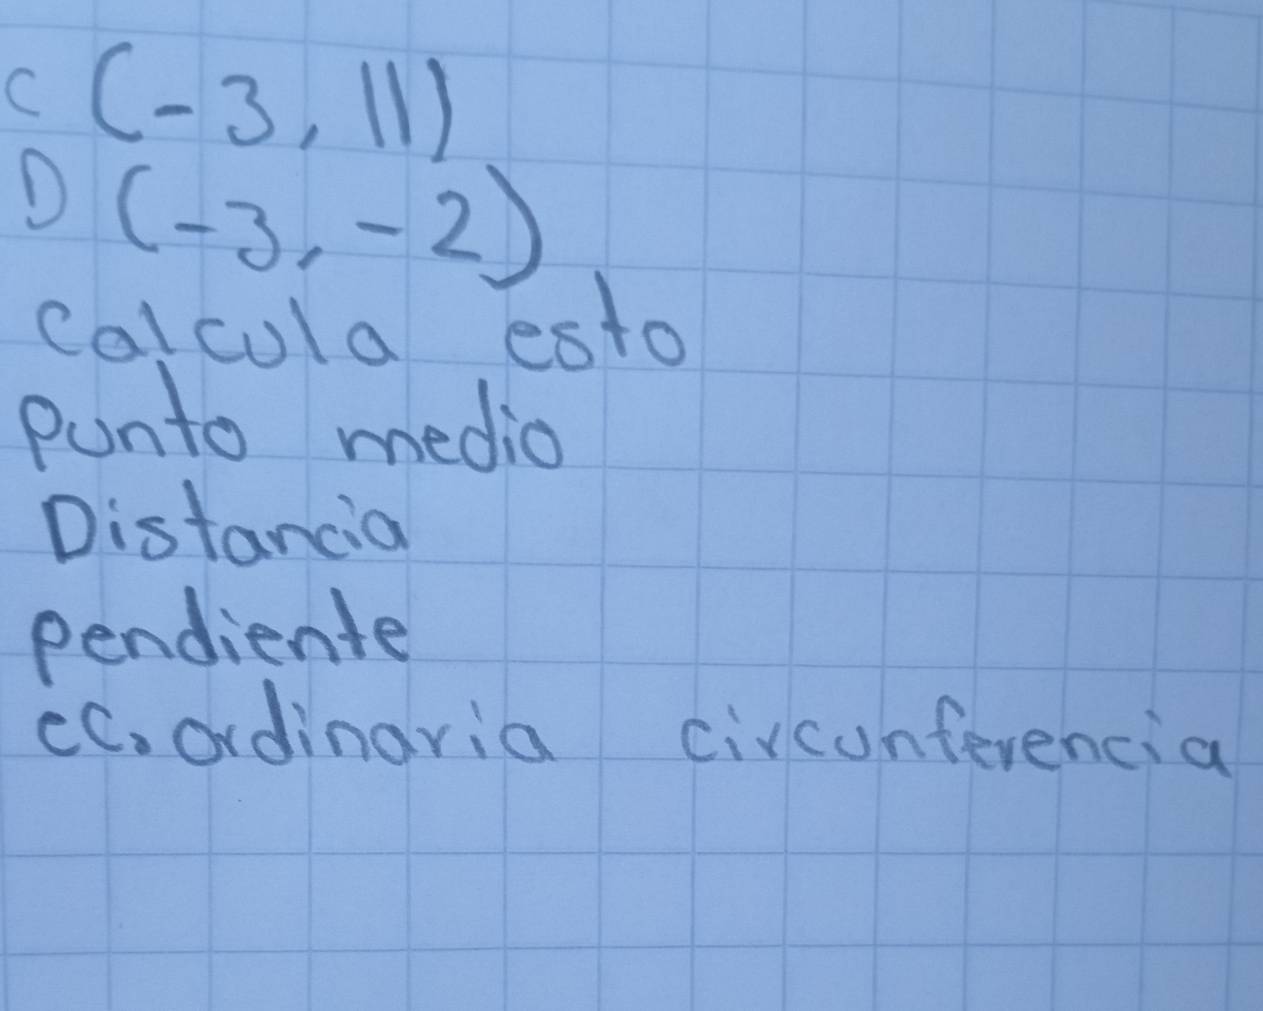 C (-3, 11)
D (-3, -2)
calcula esto
punto medio
Distancia
pendiente
ec. ordinaria circunferencia